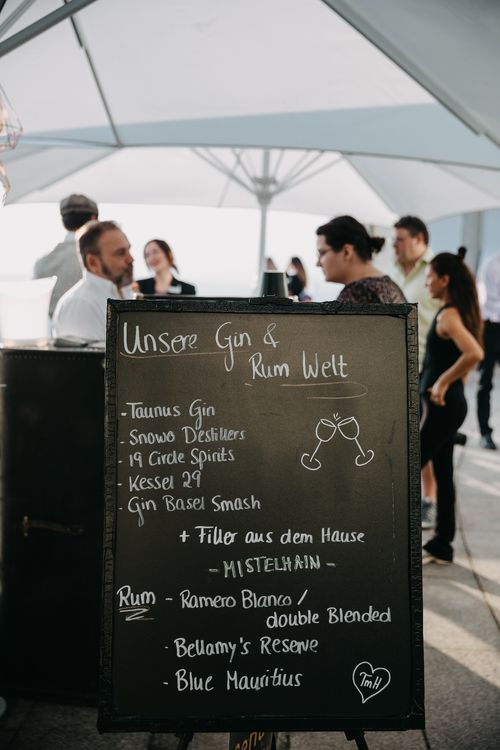 Unsere Gin &
Rum Welt
- Taunus Gin
- Snowo Destillers
- 19 Circle Spirits
- Kessel 29
- Gin Basel Smash
+ Filler aus dem Hause
- MISTELHAIN -
Rum - Ramero Blanco /
double Blended
- Bellamy's Reserve
- Blue Mauritius
TmH